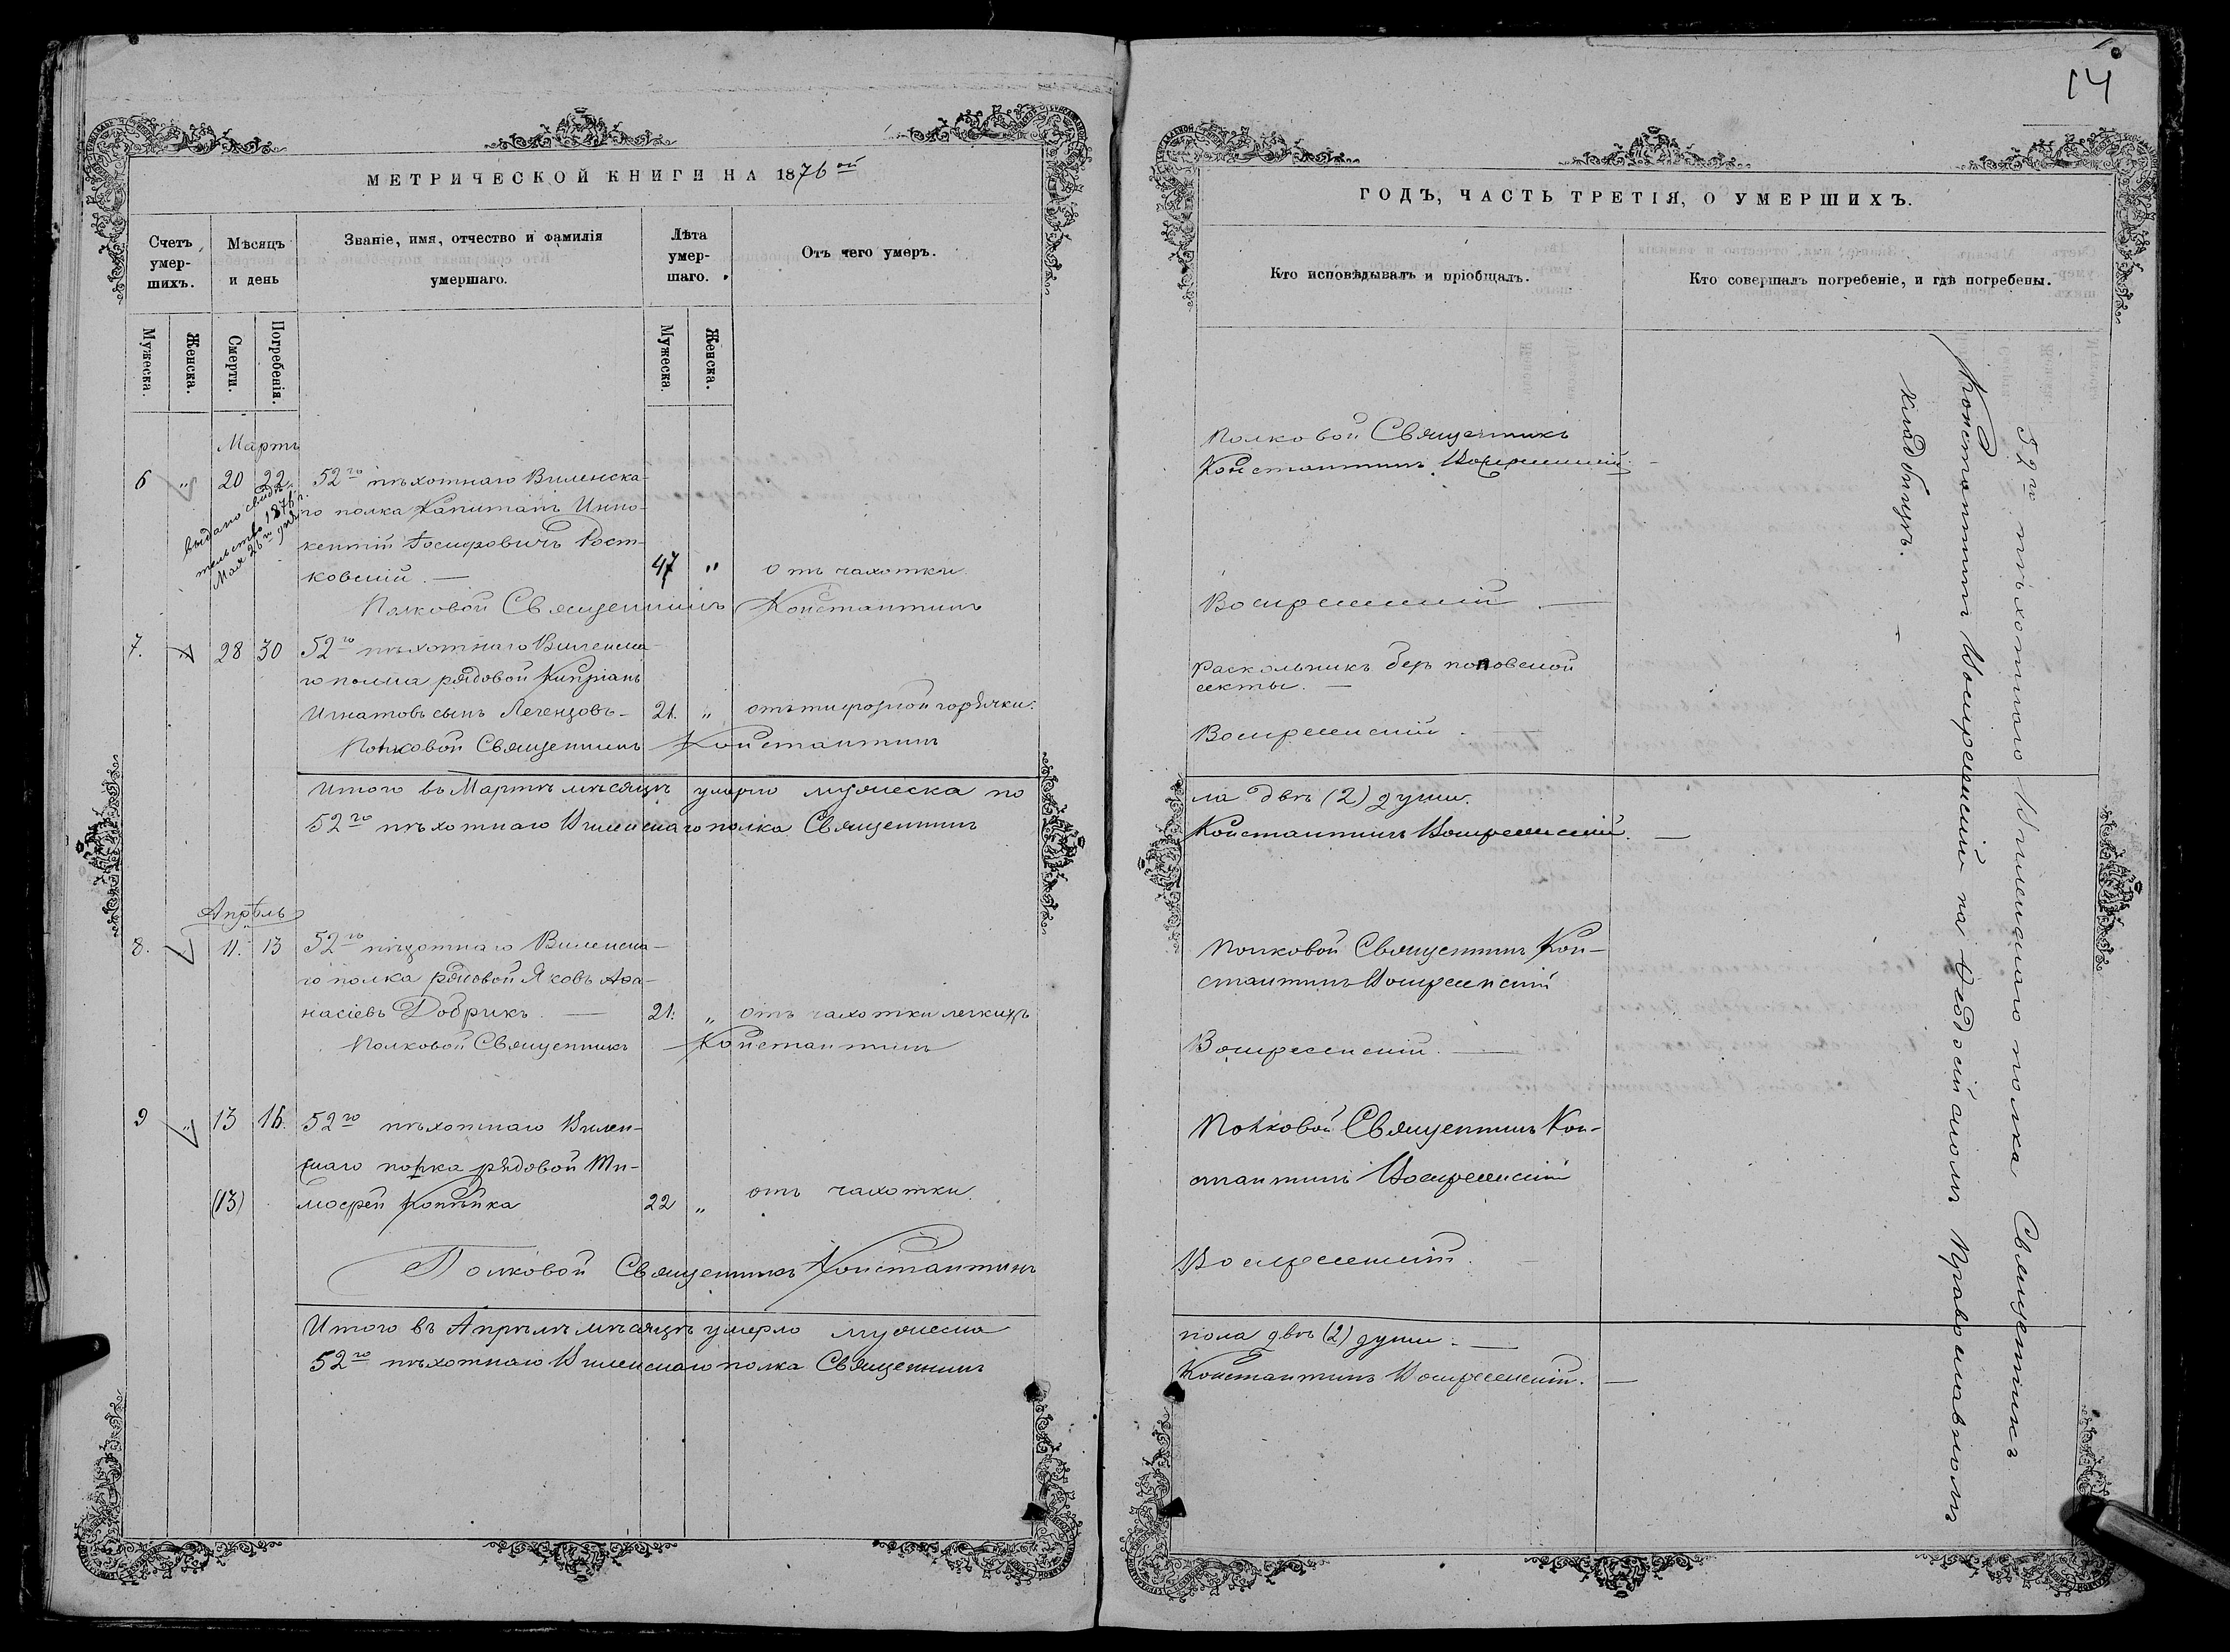 14
МЕТРИЧЕСКОЙ КНИГИ НА 1876ой
Счетъ умер-шихъ.
Мѣсяцъ и день
Званіе, имя, отчество и фамилія умершаго.
Лѣта умер-шаго.
Отъ чего умеръ.
Мужеска.
Женска.
Смерти.
Погребенія.
Мужеска.
Женска.
Мартъ
6 " 20 22 52го пѣхотнаго Виленска-
го полка Капитанъ Инно-
кентій Іосифовичъ Рост-
ковскій. — 47 " отъ чахотки.
выдано свидѣ-
тельство 1876 г.
Мая 26го дня
Полковой Священникъ Константинъ
7. " 28 30 52го пѣхотнаго Виленска-
го полка рядовой Кипріанъ
Игнатовъ сынъ Легенцовъ - 21. " отъ тифозной горячки.
Полковой Священникъ Константинъ
Итого въ Мартѣ мѣсяцѣ умерло мужеска по
52го пѣхотнаго Виленскаго полка Священникъ
Апрѣль
8. " 11. 13 52го пѣхотнаго Виленска-
го полка рядовой Яковъ Аѳа-
насіевъ Добрикъ. — 21. " отъ чахотки легкихъ
Полковой Священникъ Константинъ
9 " 13 16. 52го пѣхотнаго Вилен-
скаго полка рядовой Ти-
(13) мофей Копѣйка 22 " отъ чахотки.
Полковой Священникъ Константинъ
Итого въ Апрѣлѣ мѣсяцѣ умерло мужеска
52го пѣхотнаго Виленскаго полка Священникъ
ГОДЪ, ЧАСТЬ ТРЕТІЯ, О УМЕРШИХЪ.
Кто исповѣдывалъ и пріобщалъ.
Кто совершалъ погребеніе, и гдѣ погребены.
Полковой Священникъ
Константинъ Воскресенскій. -
Воскресенскій. —
Раскольникъ безпоповской
секты. —
Воскресенскій. —
ла двѣ (2) души.
Константинъ Воскресенскій. —
Полковой Священникъ Кон-
стантинъ Воскресенскій
Воскресенскій. —
Полковой Священникъ Кон-
стантинъ Воскресенскій
Воскресенскій. -
пола двѣ (2) души. —
Константинъ Воскресенскій. —
52го пѣхотнаго Виленскаго полка Священникъ
Константинъ Воскресенскій на Ѳеодосійскомъ Православномъ
кладбищѣ. —